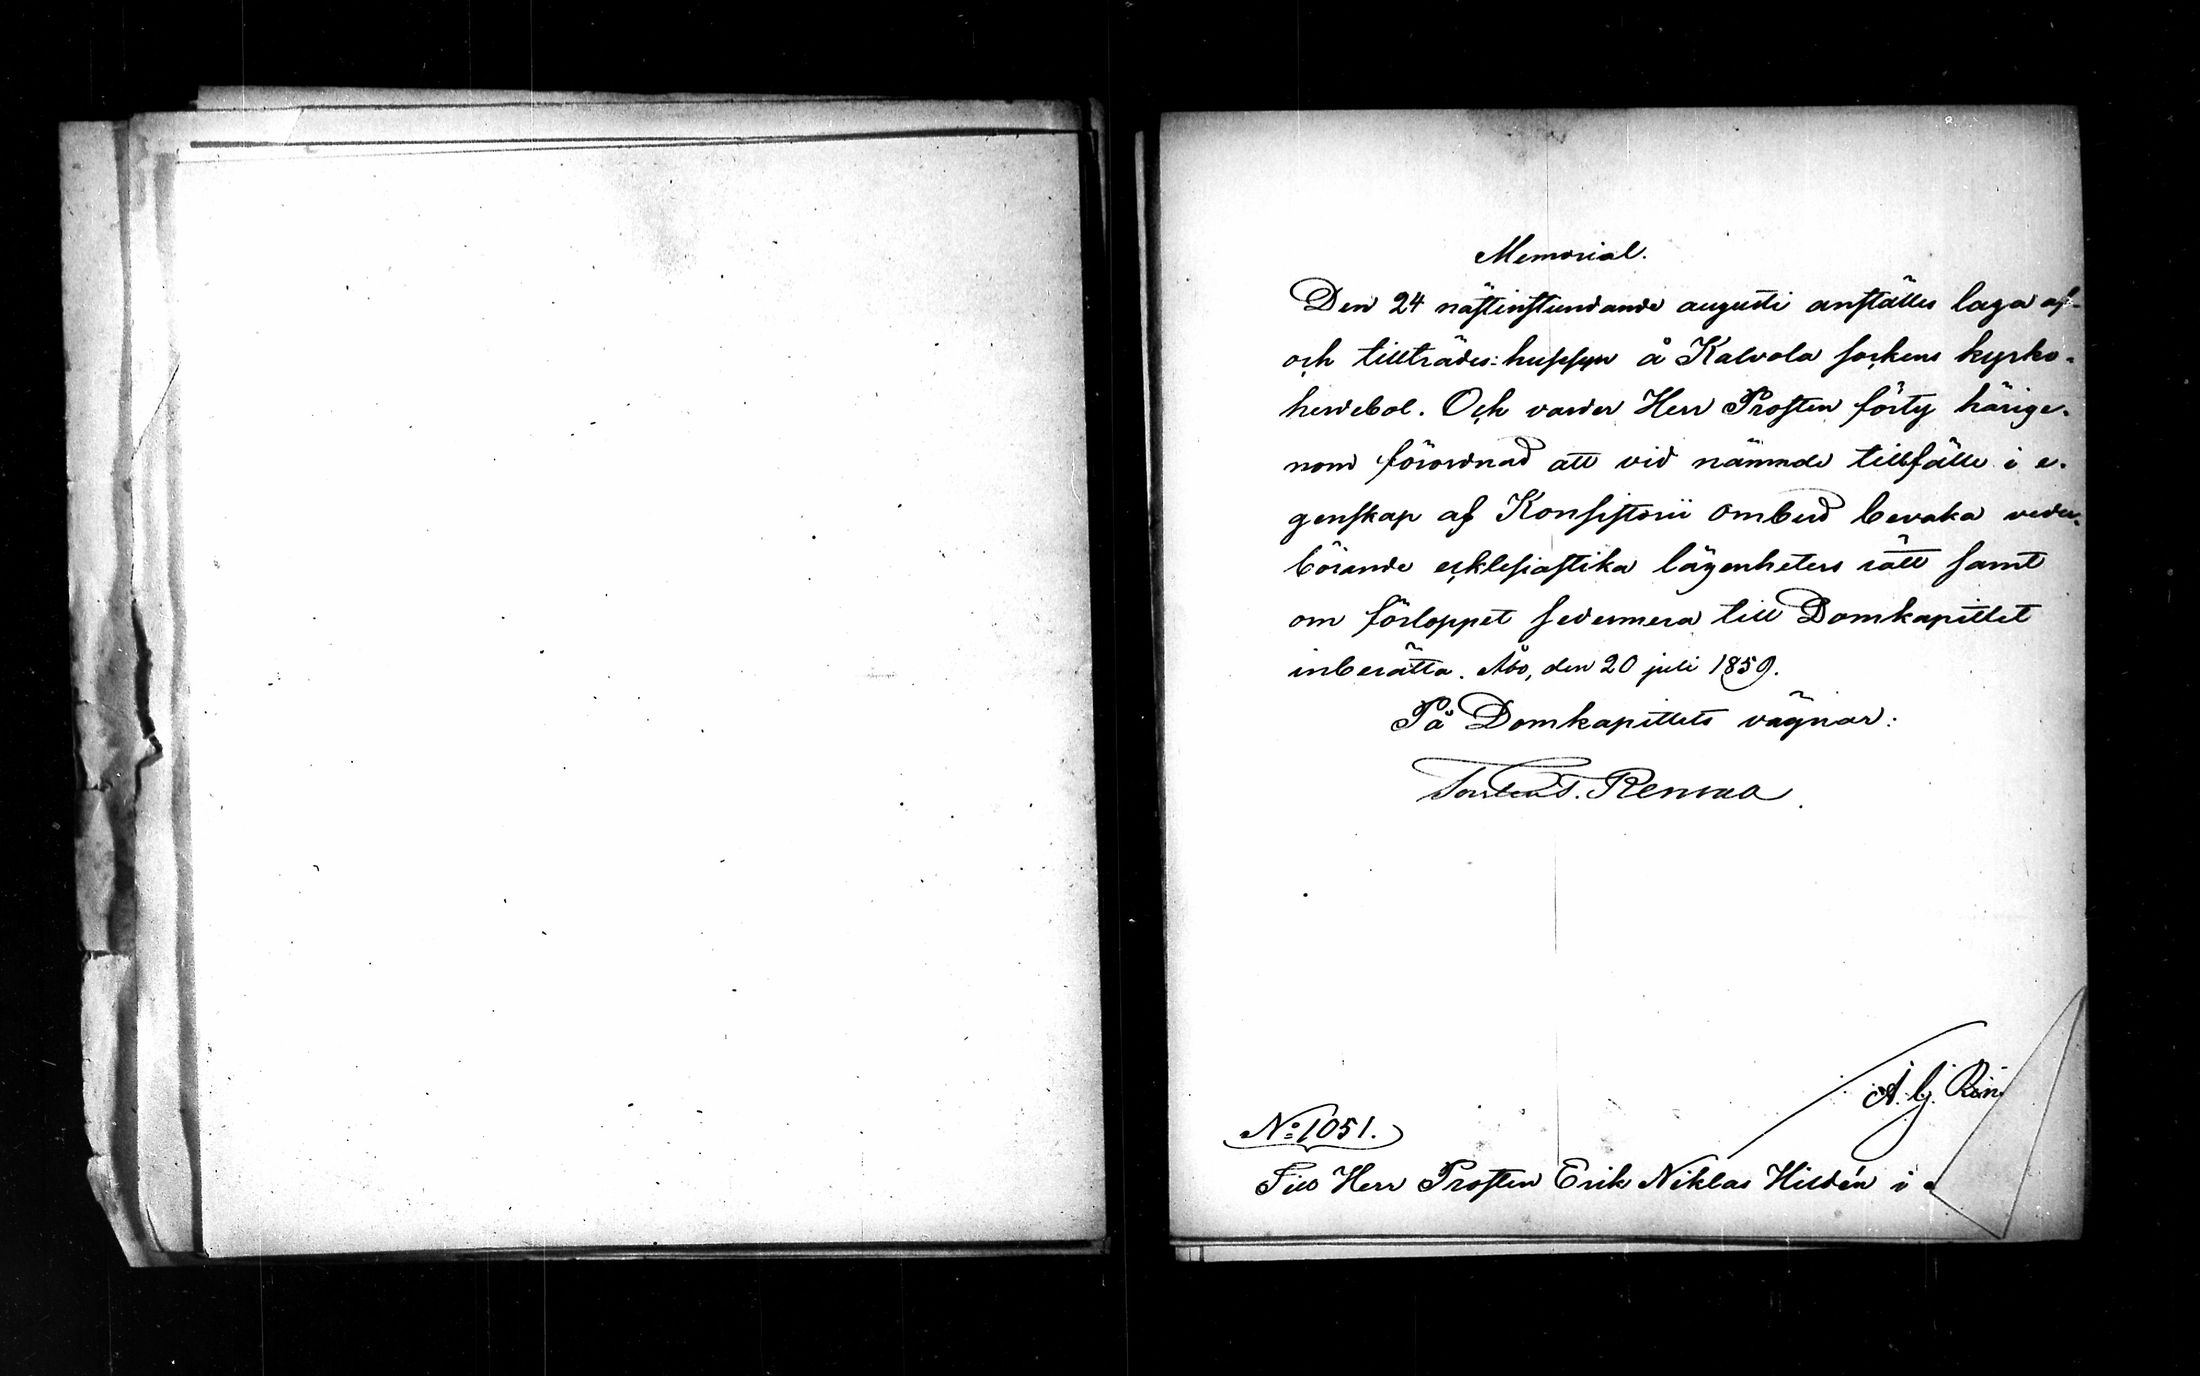 Memorial.
Den 24 nästinstundande augusti anställes laga af-
och tillträdes-husesyn å Kalvola sockens kyrko-
herdebol. Och varder Herr Prosten förty härige-
nom förordnad att vid nämnde tillfälle i e-
genskap af Konsistorii ombud bevaka veder-
börande ecklesiastika lägenheters rätt samt
om förloppet sedermera till Domkapitlet
inberätta. Åbo, den 20 juli 1859.
På Domkapitlets vägnar:
Torsten T. Renvall
A. G.
No 1051.
Till Herr Prosten Erik Niklas Hildén i